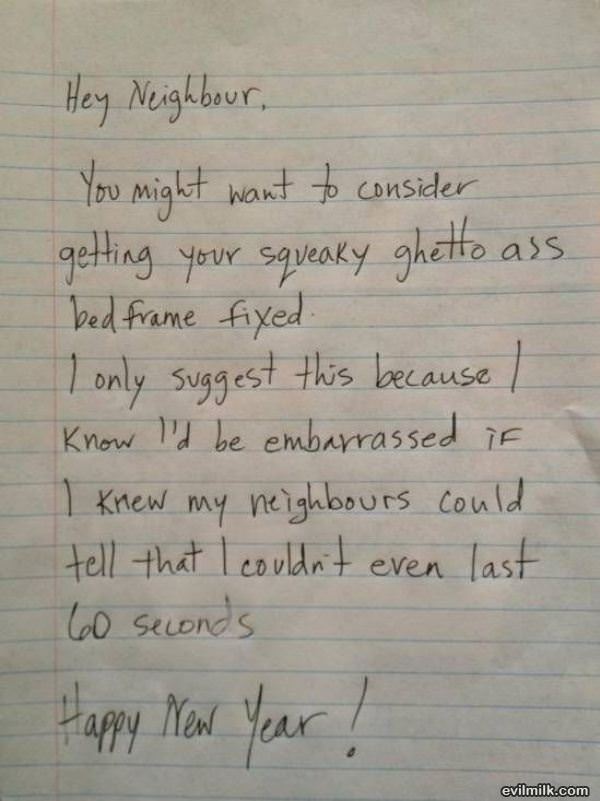 Hey Neighbour,
You might want to consider
getting your squeaky ghetto ass
bed frame fixed.
I only suggest this because I
know I'd be embarrassed if
I knew my neighbours could
tell that I couldn't even last
60 seconds
Happy New Year!
evilmilk.com